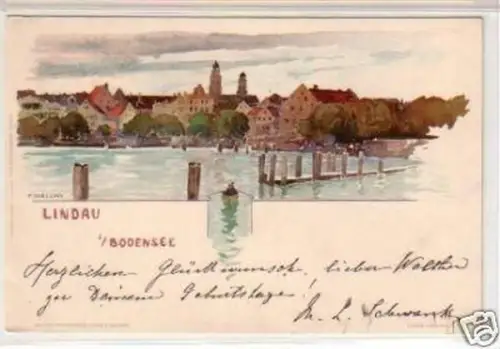 LINDAU
i/BODENSEE
Herzlichen Glückwunsch, lieber Walther
zu Deinem Geburtstage!
M. L. Schwarz
ebay